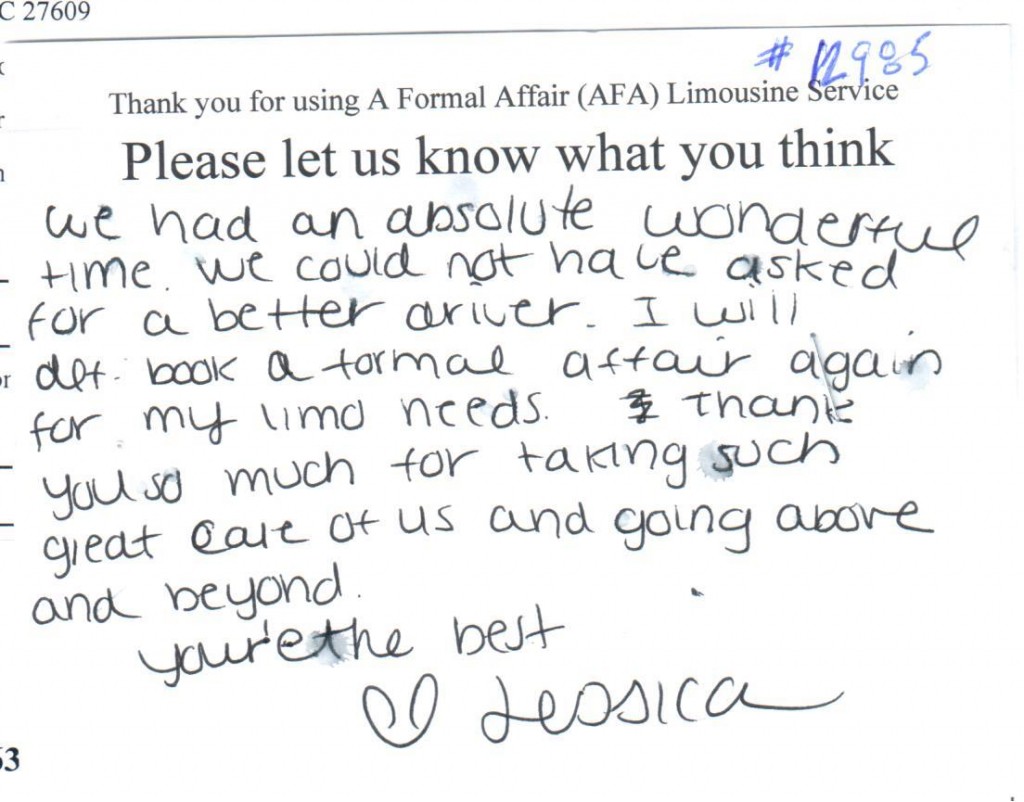 C 27609
# 12985
Thank you for using A Formal Affair (AFA) Limousine Service
Please let us know what you think
we had an absolute wonderful
time. we could not have asked
for a better driver. I will
def. book a formal affair again
for my limo needs. thank
you so much for taking such
great care of us and going above
and beyond.
your'e the best
♡ Jessica
63